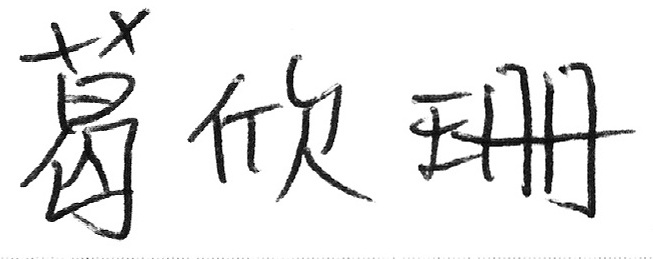 葛欣珊